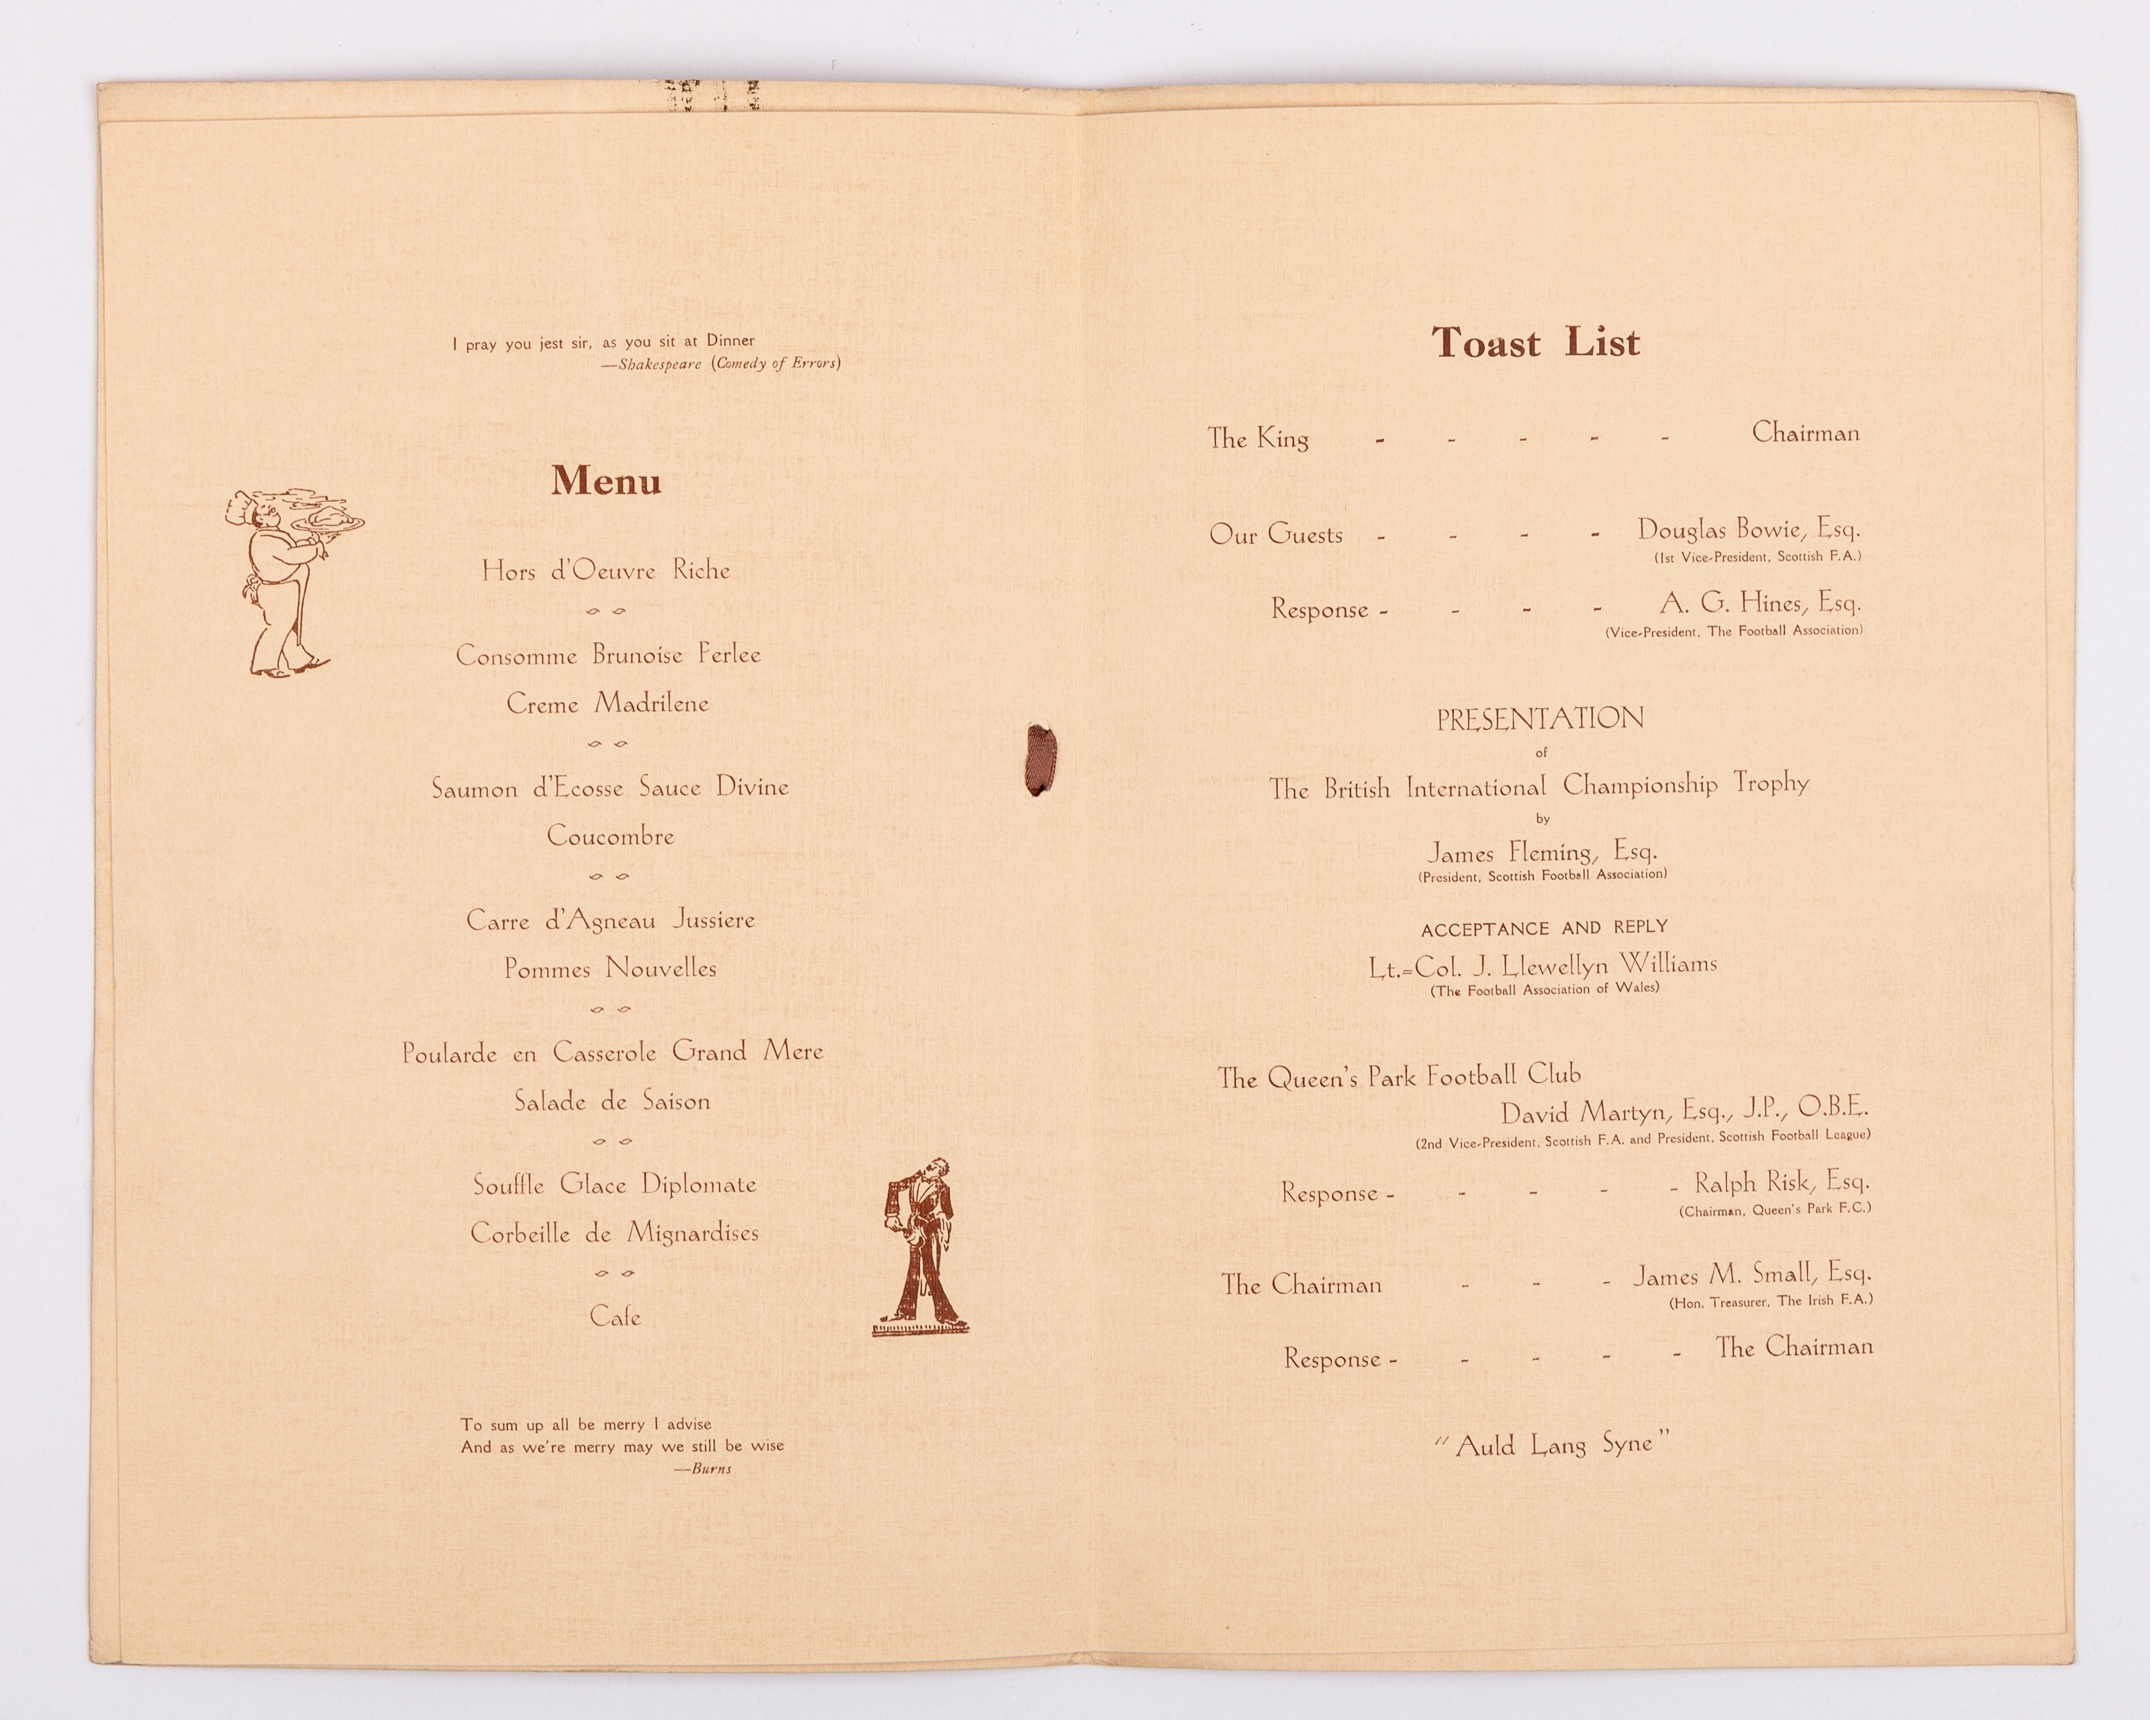 I pray you jest sir, as you sit at Dinner
—Shakespeare (Comedy of Errors)
Menu
Hors d'Oeuvre Riche
Consomme Brunoise Ferlee
Creme Madrilene
Saumon d'Ecosse Sauce Divine
Coucombre
Carre d'Agneau Jussiere
Pommes Nouvelles
Poularde en Casserole Grand Mere
Salade de Saison
Souffle Glace Diplomate
Corbeille de Mignardises
Cafe
To sum up all be merry I advise
And as we're merry may we still be wise
—Burns
Toast List
The King - - - - - Chairman
Our Guests - - - - Douglas Bowie, Esq.
(1st Vice-President, Scottish F.A.)
Response - - - - A. G. Hines, Esq.
(Vice-President, The Football Association)
PRESENTATION
of
The British International Championship Trophy
by
James Fleming, Esq.
(President, Scottish Football Association)
ACCEPTANCE AND REPLY
Lt.=Col. J. Llewellyn Williams
(The Football Association of Wales)
The Queen's Park Football Club
David Martyn, Esq., J.P., O.B.E.
(2nd Vice-President, Scottish F.A. and President, Scottish Football League)
Response - - - - - Ralph Risk, Esq.
(Chairman, Queen's Park F.C.)
The Chairman - - - James M. Small, Esq.
(Hon. Treasurer, The Irish F.A.)
Response - - - - - The Chairman
"Auld Lang Syne"